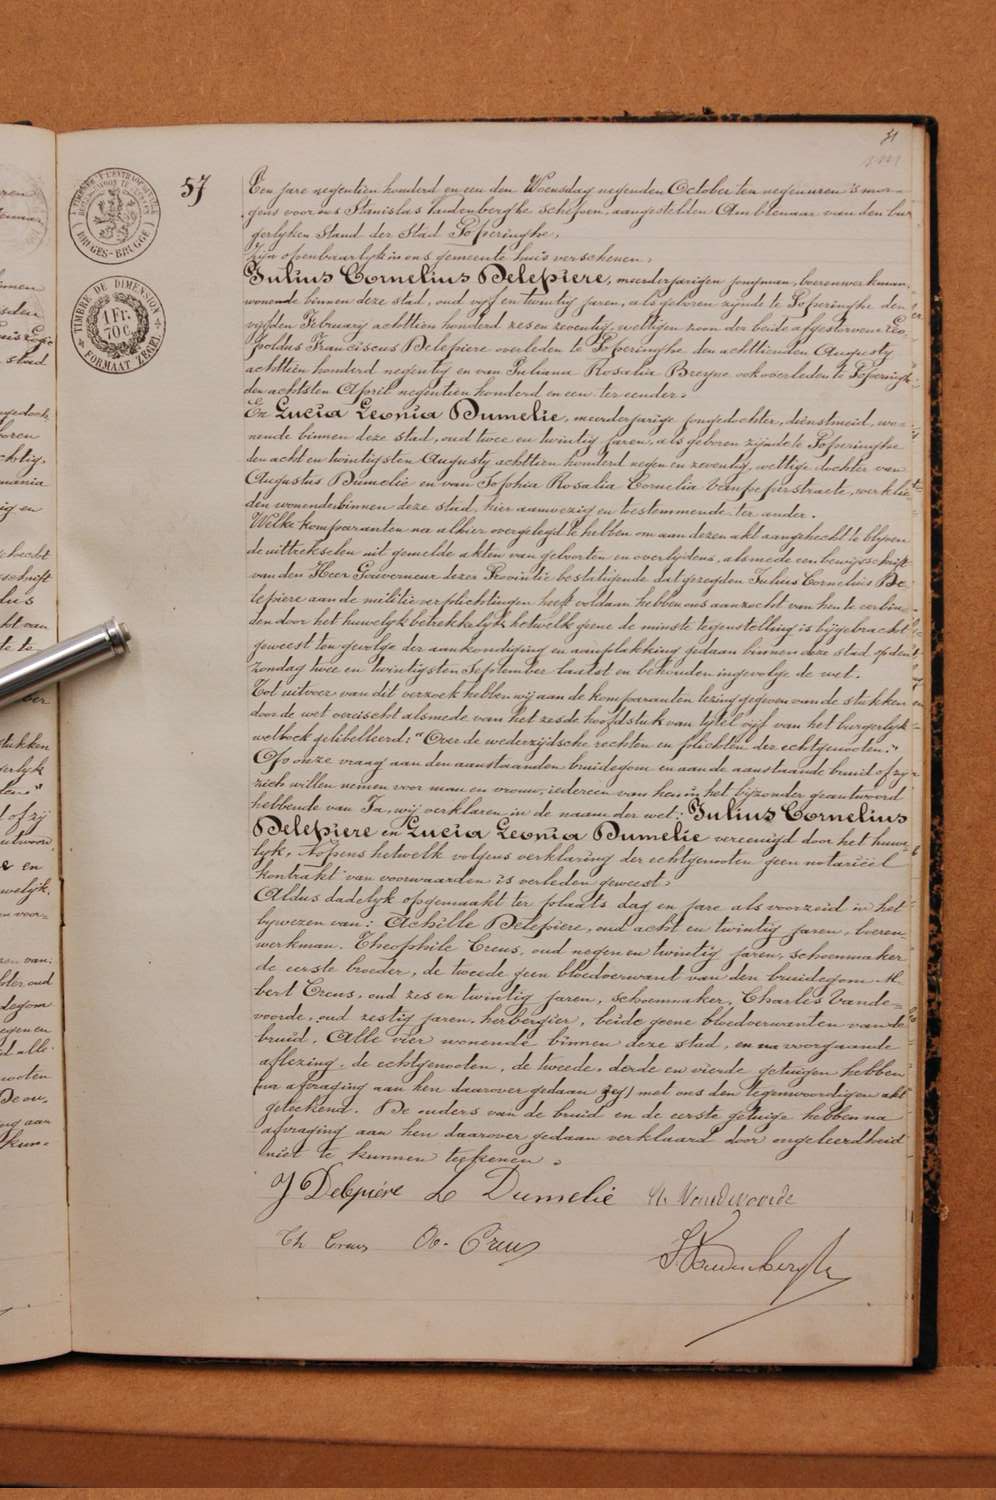 51
57
Een jare negentien honderd en een den Woensdag negenden October ten negen uren 's mor-
gens voor ons Stanislas Vandenberghe Schepen, aangestelden Ambtenaar van den bur
gerlyken Stand der Stad Poperinghe,
zijn openbaarlyk in ons gemeente huis verschenen.
Julius Cornelius Delepiere, meerderjarigen jongman, boerenwerkman,
wonende binnen deze stad, oud vyf en twintig jaren, als geboren zijnde te Poperinghe den
vijfden February achttien honderd zes en zeventig, wettigen zoon der beide afgestorvene Leo-
poldus Franciscus Delepiere overleden te Poperinghe den achttienden Augusty
achttien honderd negentig en van Juliana Rosalia Breyne ook overleden te Poperinghe
den achtsten April negentien honderd en een ter eender.
En Lucia Leonia Dumelie, meerderjarige jongedochter, dienstmeid, wo-
nende binnen deze stad, oud twee en twintig jaren, als geboren zijnde te Poperinghe
den acht en twintigsten Augusty achttien honderd negen en zeventig, wettige dochter van
Augustus Dumelie en van Sophia Rosalia Cornelia Vanpeperstraete, werklie-
den wonende binnen deze stad, hier aanwezig en toestemmende ter ander.
Welke komparanten na alhier overgelegd te hebben om aan dezen akt aangehecht te blyven
de uittrekselen uit gemelde akten van geboorten en overlydens, alsmede een bewysschrift
van den Heer Gouverneur dezer Provintie bestatigende dat gezegden Julius Cornelius De
lepiere aan de militieverplichtingen heeft voldaan hebben ons aanzocht van hen te verbin-
den door het huwelyk betrekkelyk hetwelk geene de minste tegenstelling is bijgebracht
geweest ten gevolge der aankondiging en aanplakking gedaan binnen deze stad op den
Zondag twee en twintigsten September laatst en behouden ingevolge de wet.
Tot uitvoer van dit verzoek hebben wij aan de komparanten lezing gegeven van de stukken
door de wet vereischt alsmede van het zesde hoofdstuk van tytel vijf van het burgerlyk
wetboek gelibelleerd: "Over de wederzijdsche rechten en plichten der echtgenooten."
Op onze vraag aan den aanstaanden bruidegom en aan de aanstaande bruid of zij
zich willen nemen voor man en vrouw, iedereen van hen in het bijzonder geantwoord
hebbende van Ja, wij verklaren in de naam der wet: Julius Cornelius
Delepiere en Lucia Leonia Dumelie vereenigd door het huwe-
lyk. Nopens hetwelk volgens verklaring der echtgenooten geen notariëel
kontrakt van voorwaarden is verleden geweest.
Aldus dadelyk opgemaakt ter plaats dag en jare als voorzeid in het
bywezen van: Achille Delepiere, oud acht en twintig jaren, boeren-
werkman. Theophile Creus, oud negen en twintig jaren, schoenmaker
de eerste broeder, de tweede geen bloedverwant van den bruidegom Al-
bert Creus, oud zes en twintig jaren, schoenmaker, Charles Vande-
voorde, oud zestig jaren, herbergier, beide geene bloedverwanten van de
bruid. Alle vier wonende binnen deze stad, en na voorgaande
aflezing, de echtgenooten, de tweede, derde en vierde getuigen hebben
(na afvraging aan hen daarover gedaan zeg) met ons den tegenwoordigen akt
geteekend. De ouders van de bruid en de eerste getuige hebben na
afvraging aan hen daarover gedaan verklaard door ongeleerdheid
niet te kunnen teekenen.
J Delepiére L Dumelié
Th Creus
S. Vandenberghe
TIMBRE DE DIMENSION
1 Fr.
70 C.
FORMAAT ZEGEL
BRUGES-BRUGGE